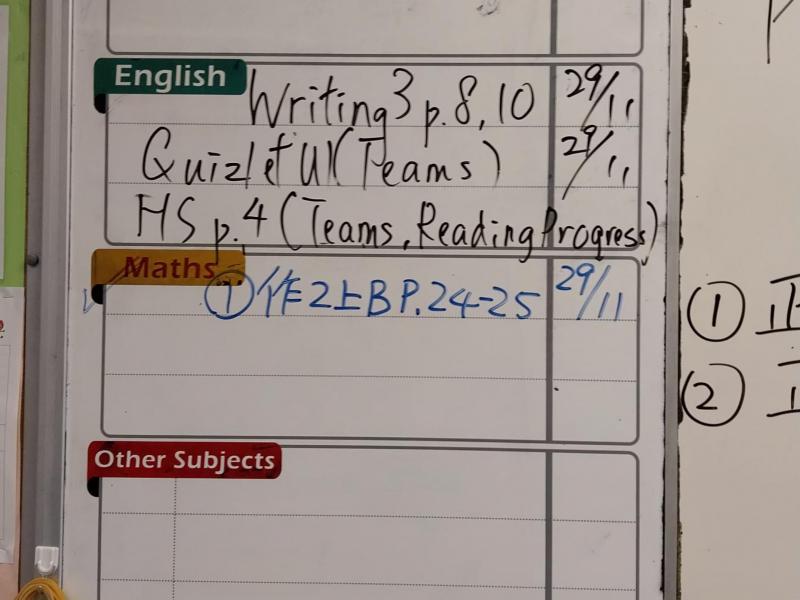 English
Writing 3 p.8, 10 29/11
Quizlet U1 (Teams) 29/11
HS p.4 (Teams, Reading Progress)
Maths
① 作2上B P.24-25 29/11
Other Subjects
①正
②